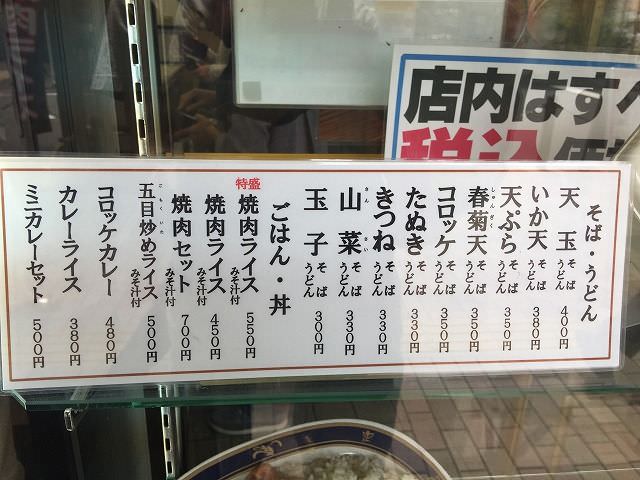 店内はすべ
税込価
そば・うどん
天玉 そば うどん 400円
いか天 そば うどん 380円
天ぷら そば うどん 350円
春菊天 しゅんぎく そば うどん 350円
コロッケ そば うどん 350円
たぬき そば うどん 330円
きつね そば うどん 330円
山菜 さんさい そば うどん 330円
玉子 そば うどん 300円
ごはん・丼
特盛 焼肉ライス みそ汁付 550円
焼肉ライス みそ汁付 450円
焼肉セット みそ汁付 700円
五目炒めライス ごもくいた みそ汁付 500円
コロッケカレー 480円
カレーライス 380円
ミニカレーセット 500円